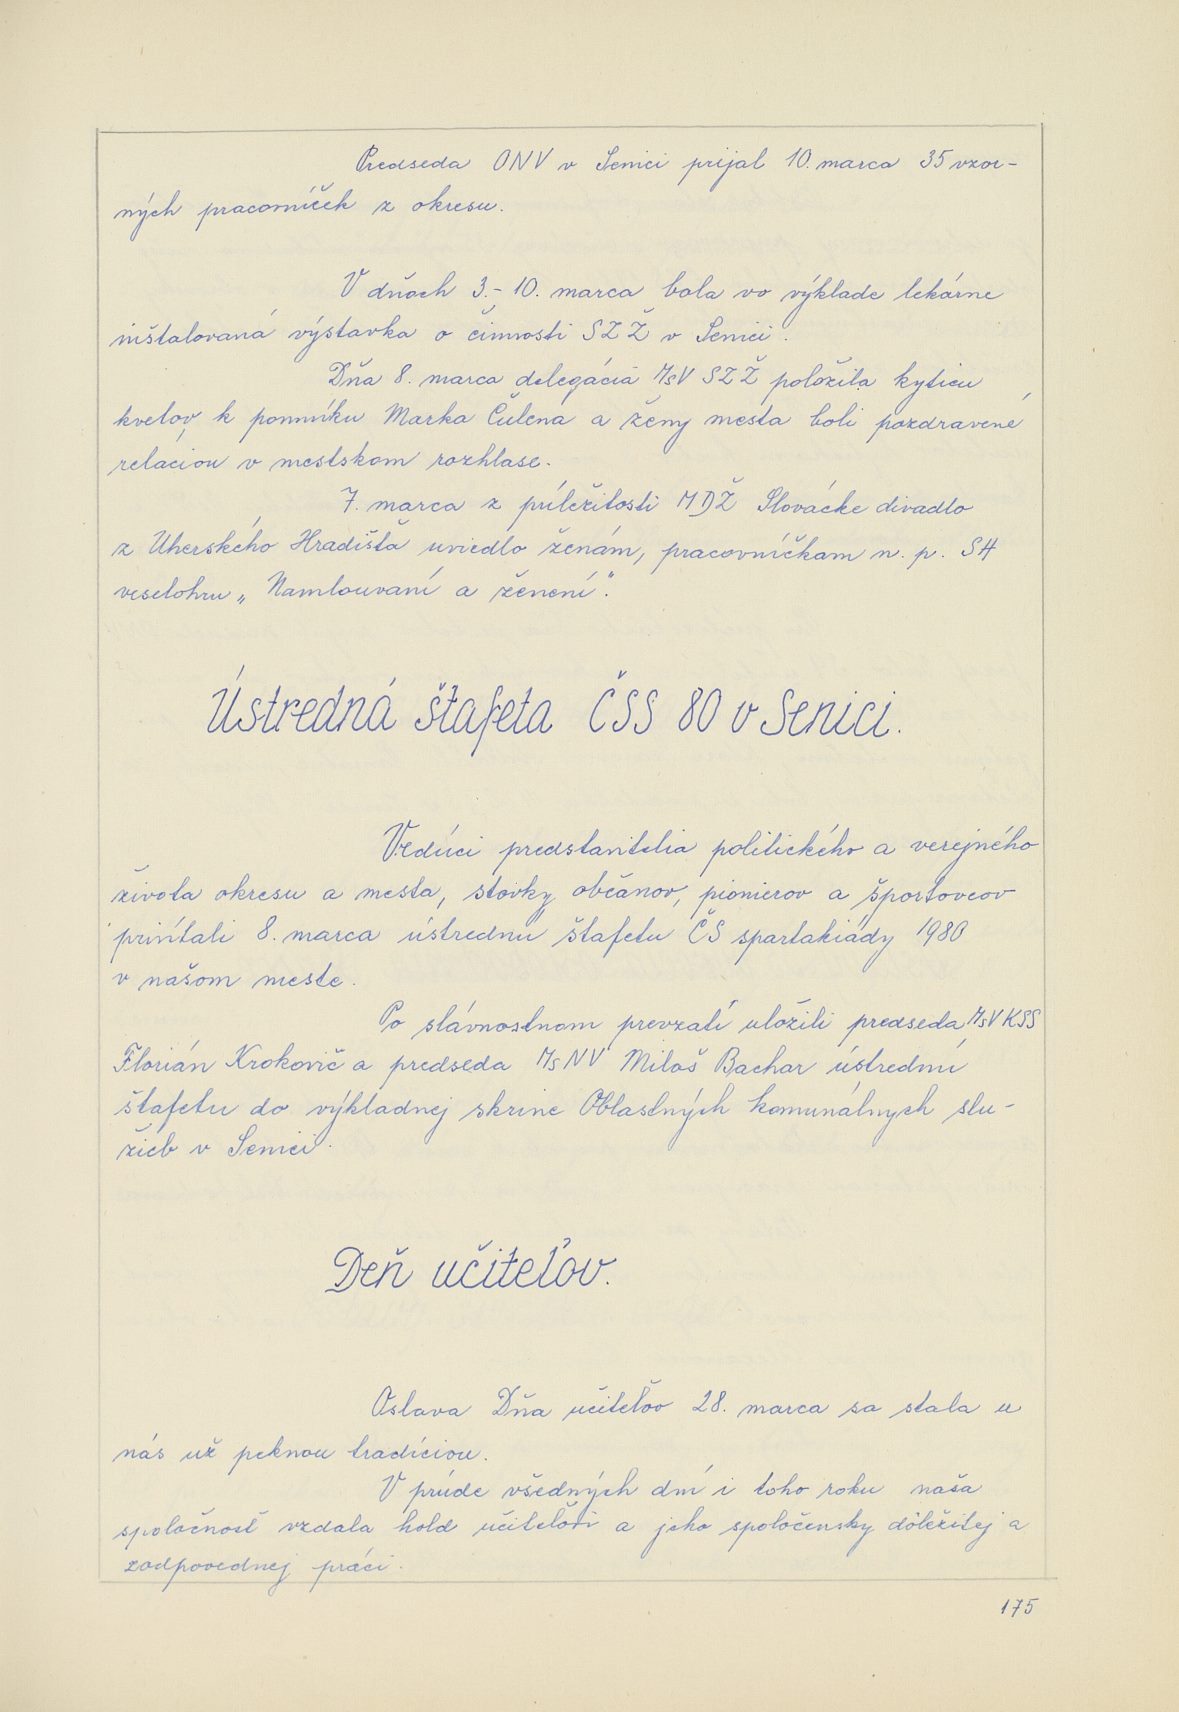 Predseda ONV v Senici prijal 10. marca 35 vzor-
ných pracovníček z okresu.
V dňoch 3.- 10. marca bola vo výklade lekárne
inštalovaná výstavka o činnosti SZŽ v Senici.
Dňa 8. marca delegácia MsV SZŽ položila kyticu
kvetov k pomníku Marka Čulena a ženy mesta boli pozdravené
reláciou v mestskom rozhlase.
7. marca z príležitosti MDŽ Slovácke divadlo
z Uherského Hradišťa uviedlo ženám, pracovníčkam n. p. SH
veselohru „Namlouvaní a ženení".
Ústredná štafeta ČSS 80 v Senici.
Vedúci predstavitelia politického a verejného
života okresu a mesta, stovky občanov, pionierov a športovcov
privítali 8. marca ústrednu štafetu ČS spartakiády 1980
v našom meste.
Po slávnostnom prevzatí uložili predseda MsV KSS
Florián Krokovič a predseda MsNV Miloš Bachar ústrednú
štafetu do výkladnej skrine Oblastných komunálnych slu-
žieb v Senici.
Deň učiteľov.
Oslava Dňa učiteľov 28. marca sa stala u
nás už peknou tradíciou.
V prúde všedných dní i toho roku naša
spoločnosť vzdala hold učiteľovi a jeho spoločensky dôležitej a
zodpovednej práci.
175